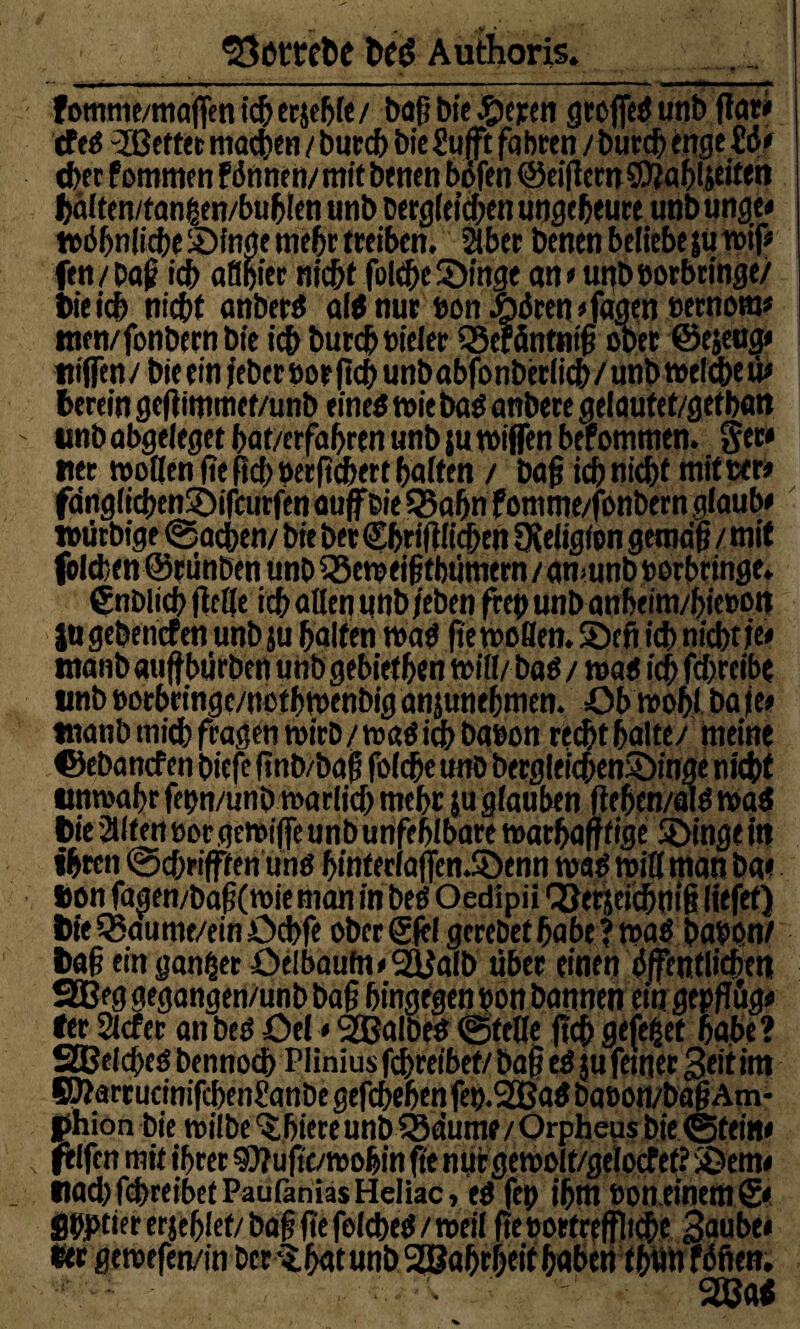 Vorrede deß Authoris.
komme/massen ich erzehle/ daß die Hexen grosses und star⸗
ckes Wetter machen / durch die Lufft fahren / durch enge Lö⸗
cher kommen können/ mit denen bösen Geistern Mahlzeiten
halten/tantzen/buhlen und dergleichen ungeheure und unge⸗
wöhnliche Dinge mehr treiben. Aber denen beliebe zu wis⸗
sen / daß ich allhier nicht solche Dinge an⸗ und vorbringe/
die ich nicht anders als nur von Hören⸗sagen vernom⸗
men/ sondern die ich durch vieler Bekäntniß oder Gezeug⸗
nissen / die ein jeder vor sich und absonderlich / und welche ü⸗
berein gestimmet/und eines wie das andere gelautet/gethan
und abgeleget hat/erfahren und zu wissen bekommen. Fer⸗
ner wollen sie sich versichert halten / daß ich nicht mit ver⸗
fänglichen Discursen auff die Bahn komme/sondern glaub⸗
würdige Sachen/ die der Christlichen Religion gemäß / mit
solchen Gründen und Beweißthümern / an⸗und vorbringe.
Endlich stelle ich allen und jeden frey und anheim/hievon
zu gedencken und zu halten was sie wollen. Deñ ich nicht je⸗
mand auffbürden und gebiethen will/ das / was ich schreibe
und vorbringe/nothwendig anzunehmen. Ob wohl da je⸗
mand mich fragen wird / was ich davon recht halte/ meine
Gedancken diese sind/daß solche und dergleichen Dinge nicht
unwahr seyn/und warlich mehr zu glauben stehen/als was
die Alten vor gewisse und unfehlbare warhafftige Dinge in
ihren Schrifften uns hinterlassen. Denn was will man da⸗
von sagen/daß(wie man in des Oedipii Verzeichniß liefet)
die Bäume/ein Ochse oder Esel geredet habe? was davon/
daß ein gantzer Oelbaum⸗Wald über einen öffentlichen
Weg gegangen/und daß hingegen von dannen ein gepflüg⸗
ter Acker an des Oel⸗Waldes Stelle sich gesetzet habe?
Welches dennoch Plinius schreibet/ daß es zu seiner Zeit im
Marrucinischen Lande geschehen sey. Was davon/daß Am-
phion die wilde Thiere und Bäume / Orpheus die Stein⸗
felsen mit ihrer Music/wohin sie nur gewolt/gelocket? Dem⸗
nach schreibet Paufanias Heliac, es sey ihm von einem E⸗
gyptier erzehlet/ daß sie solches / weil sie vortreffliche Zaube⸗
rer gewesen/in der That und Wahrheit haben thun köñen.
Was